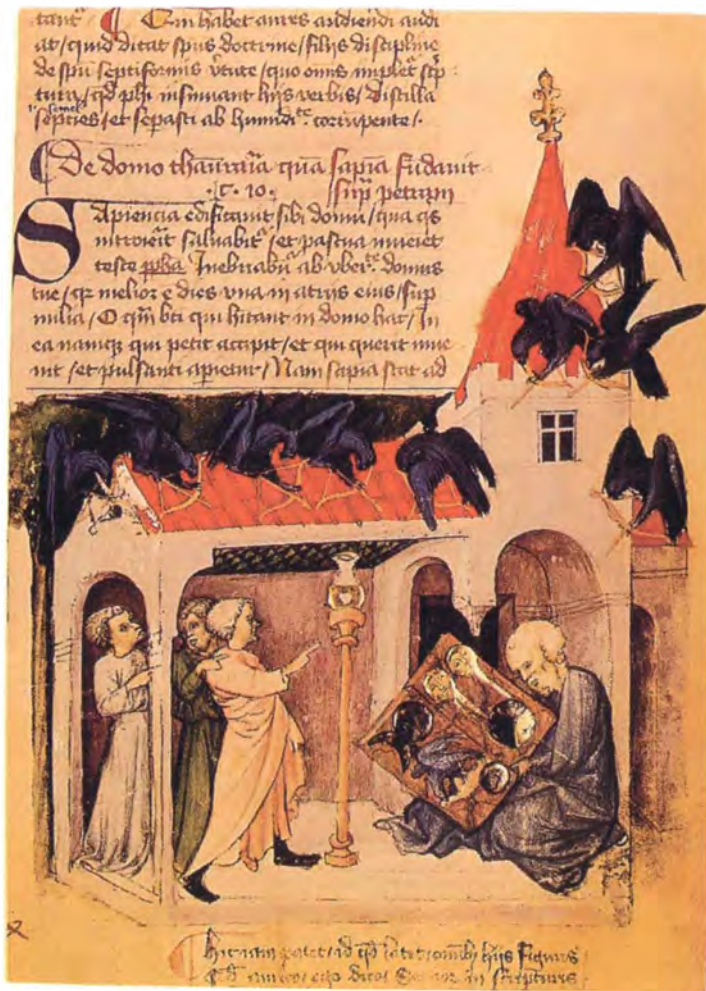 tant᷑ ¶ Qui habet aures audiendi audi
at / quid dicat sp̄us doctrine / filijs discipline
de sp̄u septiformis v̄tute / quo omis implet᷑ sc̄p
tura / qd phi insinuant hijs verbis / distilla
septies / et sepasti ab humidi.te corrupente /.
¶ De domo thaurar̄ia quā sapīa fūdavit
.C. 10. sup̄ petram
Sapiencia edificauit sibi domū / quā qs
introierit saluabit᷑ / et pascua inueiet
teste ppha Inebriabūt᷑ ab vber.te domus
tue / qr melior ē dies vna in atriis eius / sup
milia / O qm̄ bti qui hītant in domo hac / In
ea namqz qui petit accipit / et qui querit inue
nit / et pulsanti apietur / Nam sapīa stat ad
¶ Hic iam patet / id qd latet / omībz hijs figuris
in scripturis